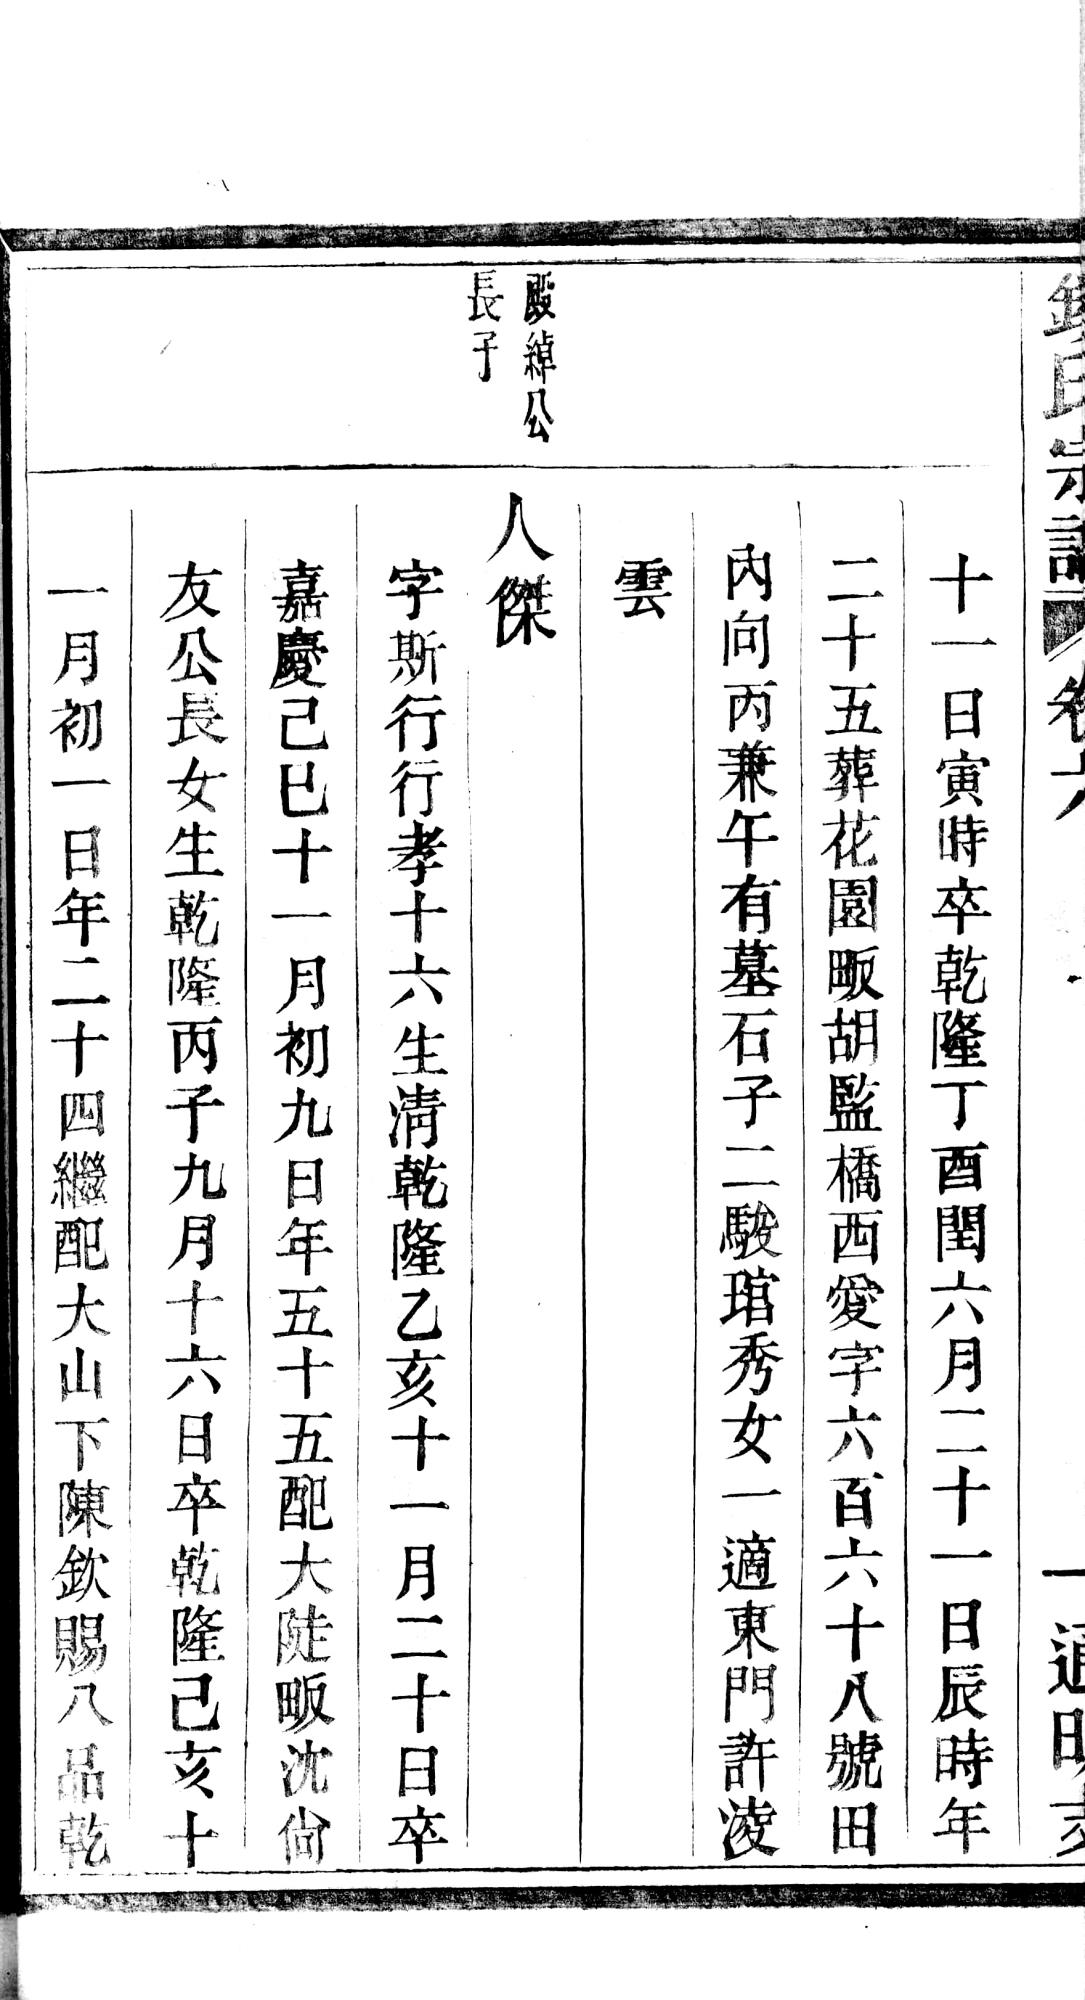 氏宗譜 卷六 一 通明支
十一日寅時卒乾隆丁酉閏六月二十一日辰時年
二十五葬花園畈胡監橋西愛字六百六十八號田
內向丙兼午有墓石子二駿琯秀女一適東門許淩
雲
殿綽公
長子
人傑
字斯行行孝十六生淸乾隆乙亥十一月二十日卒
嘉慶己巳十一月初九日年五十五配大陡畈沈尙
友公長女生乾隆丙子九月十六日卒乾隆己亥十
一月初一日年二十四繼配大山下陳欽賜八品乾